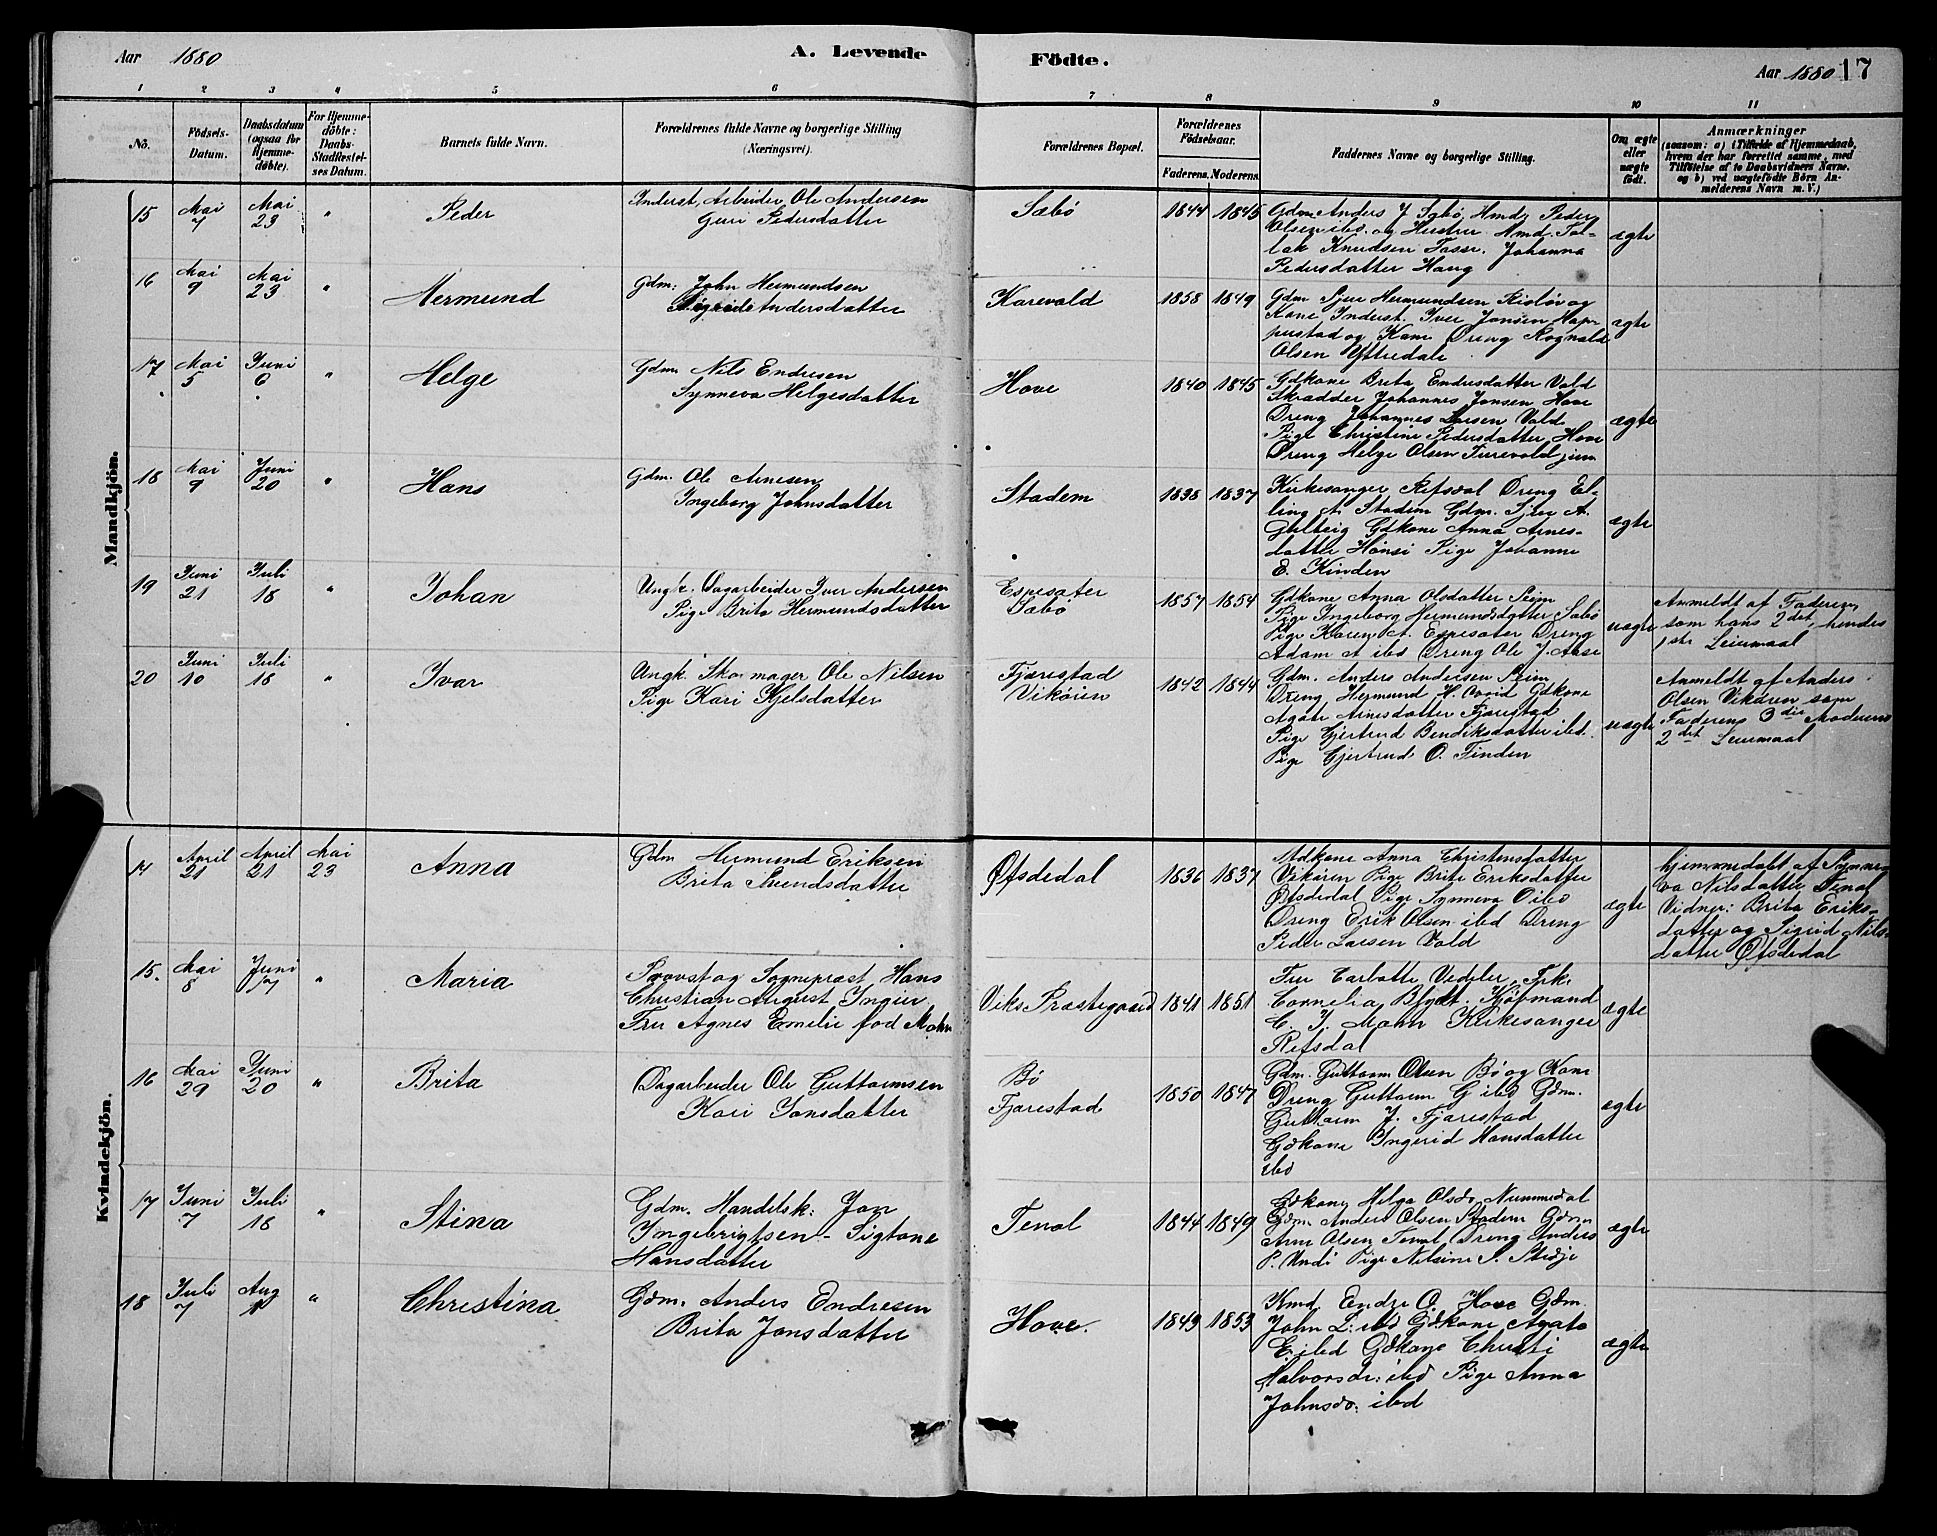 Aar 1880 A. Levende Födte. Aar 1880 17
1 2 3 4 5 6 7 8 9 10 11
No. Födsels-Datum. Daabsdatum (ogsaa for Hjemmedöbte). For Hjemmedöbte: Daabs-Stadfestelses Datum. Barnets fulde Navn. Forældrenes fulde Navne og borgerlige Stilling (Næringsvei). Forældrenes Bopæl. Forældrenes Födselsaar. Faderens. Moderens. Faddernes Navne og borgerlige Stilling. Om ægte eller uægte födt. Anmærkninger (saasom: a) i Tilfælde af Hjemmedaab, hvem der har forrettet samme, med Tilföielse af to Daabsvidners Navne, og b) ved uægtefödte Börn Anmelderens Navn m. V.)
Mandkjön.
15 Mai 7 Mai 23 " Peder
Inderst, Arbeider Ole Andersen
Guri Pedersdatter
Sæbö 1844 1845
Gdm. Anders J Sæbö, Hmd. Peder
Olsen ibd. og Hustru Hmd. Tol-
lak Knudsen Johanna
Pedersdatter Haug
ægte
16 Mai 9 Mai 23 " Hermund
Gdm: John Hermundsen
Sigrid Andersdatter
Karevold 1858 1849
Gdm Sjur Hermundsen Risløv og
Kone Inderst. Iver Jonsen Hop-
perstad og Kone Dreng Rognald
Olsen Yttredale
ægte
17 Mai 5 Juni 6 " Helge
Gdm Nils Endresen
Synneva Helgesdatter
Hove 1840 1845
Gdkone Brita Endresdatter Vold
Skrædder Johannes Jonsen Hove
Dreng Johannes Larsen Vold
Pige Christine Pedersdatter Hove
Dreng Helge Olsen Turevold jun
ægte
18 Mai 9 Juni 20 " Hans
Gdm. Ole Arnesen
Ingeborg Johnsdatter
Stadem 1838 1837
Kirkesanger Refsdal Dreng El-
ling A. Stadem Gdm. Sjur A.
Gdkone Anna Arnes-
datter Hönsi Pige Johanne
E. Kinden
ægte
19 Juni 21 Juli 18 " Johan
Ungk. Dagarbeider Iver Andersen
Pige Brita Hermundsdatter
Espesæter
Sæbö
1857 1854
Gdkone Anna Olsdatter Seim
Pige Ingeborg Hermundsdatter Sæbö
Pige Karen A. Espesæter Dreng
Adam A ibd Dreng Ole J. Aase
uægte
Anmeldt af Faderen
som hans 2det, hendes
1ste Leiermaal
20 Juni 10 Juli 18 " Ivar
Ungk. Skomager Ole Nilsen
Pige Kari Kjelsdatter
Fjærestad
Vikören
1842 1844
Gdm. Anders Andersen Seim
Dreng Hermund H. Gdkone
Agate Arnesdatter Fjærestad
Pige Gjertrud Bendiksdatter ibd.
Pige Gjertrud O. Finden
uægte
Anmeldt af Anders
Olsen Vikören som
Faderens 3die Moderens
2det Leiermaal
Kvindekjön.
14 April 21 April 21 Mai 23 Anna
Gdm Hermund Eriksen
Brita Svendsdatter
Øfsdedal 1836 1837
Mdkone Anna Christensdatter
Vikören Pige Brite Eriksdatter
Øfsdedal Pige Synneva O ibd
Dreng Erik Olsen ibd Dreng
Peder Larsen Vold
ægte
hjemmedøbt af Synne-
va Nilsdatter Tenal
Vidner: Brita Eriks-
datter og Sigrid Nils-
datter Øfsdedal
15. Mai 8 Juni 17 " Maria
Provst og Sognepræst Hans
Christian August Ingier.
Fru Agnes Emilie fød Mohn
Viks Præstegaard 1841 1851
Fru Carlotte Vedeler, Frk.
Cornelia Blydt. Kjöbmand
C. J. Mohn Kirkesanger
Refsdal
ægte
16 Mai 29 Juni 20 " Brita
Dagarbeider Ole Guttormsen
Kari Jonsdatter
Bö
Fjærestad
1850 1847
Gdm. Guttorm Olsen Bö og Kone
Dreng Guttorm G ibd Gdm.
Guttorm J. Fjærestad
Gdkone Ingerid Hansdatter
ibd
ægte
17 Juni 7 Juli 18 " Stina
Gdm. Handelsk: Jon
Ingebrigtsen - Sigtone
Hansdatter
Tenol 1844 1849
Gdkone Helga Olsdr. Nummedal
Gdm. Anders Olsen Stadem Gdm
Arne Olsen Tenal Dreng Anders
P. Undi Pige Nilsine S. Stedje
ægte
18 Juli 7 Aug 1 " Christina
Gdm. Anders Endresen
Brita Jonsdatter
Hove. 1843 1853
Kmd. Endre O. Hove Gdm.
John L: ibd Gdkone Agate
E ibd Gdkone Christi
Halvorsdr: ibd Pige Anna
Johnsdr. ibd
ægte